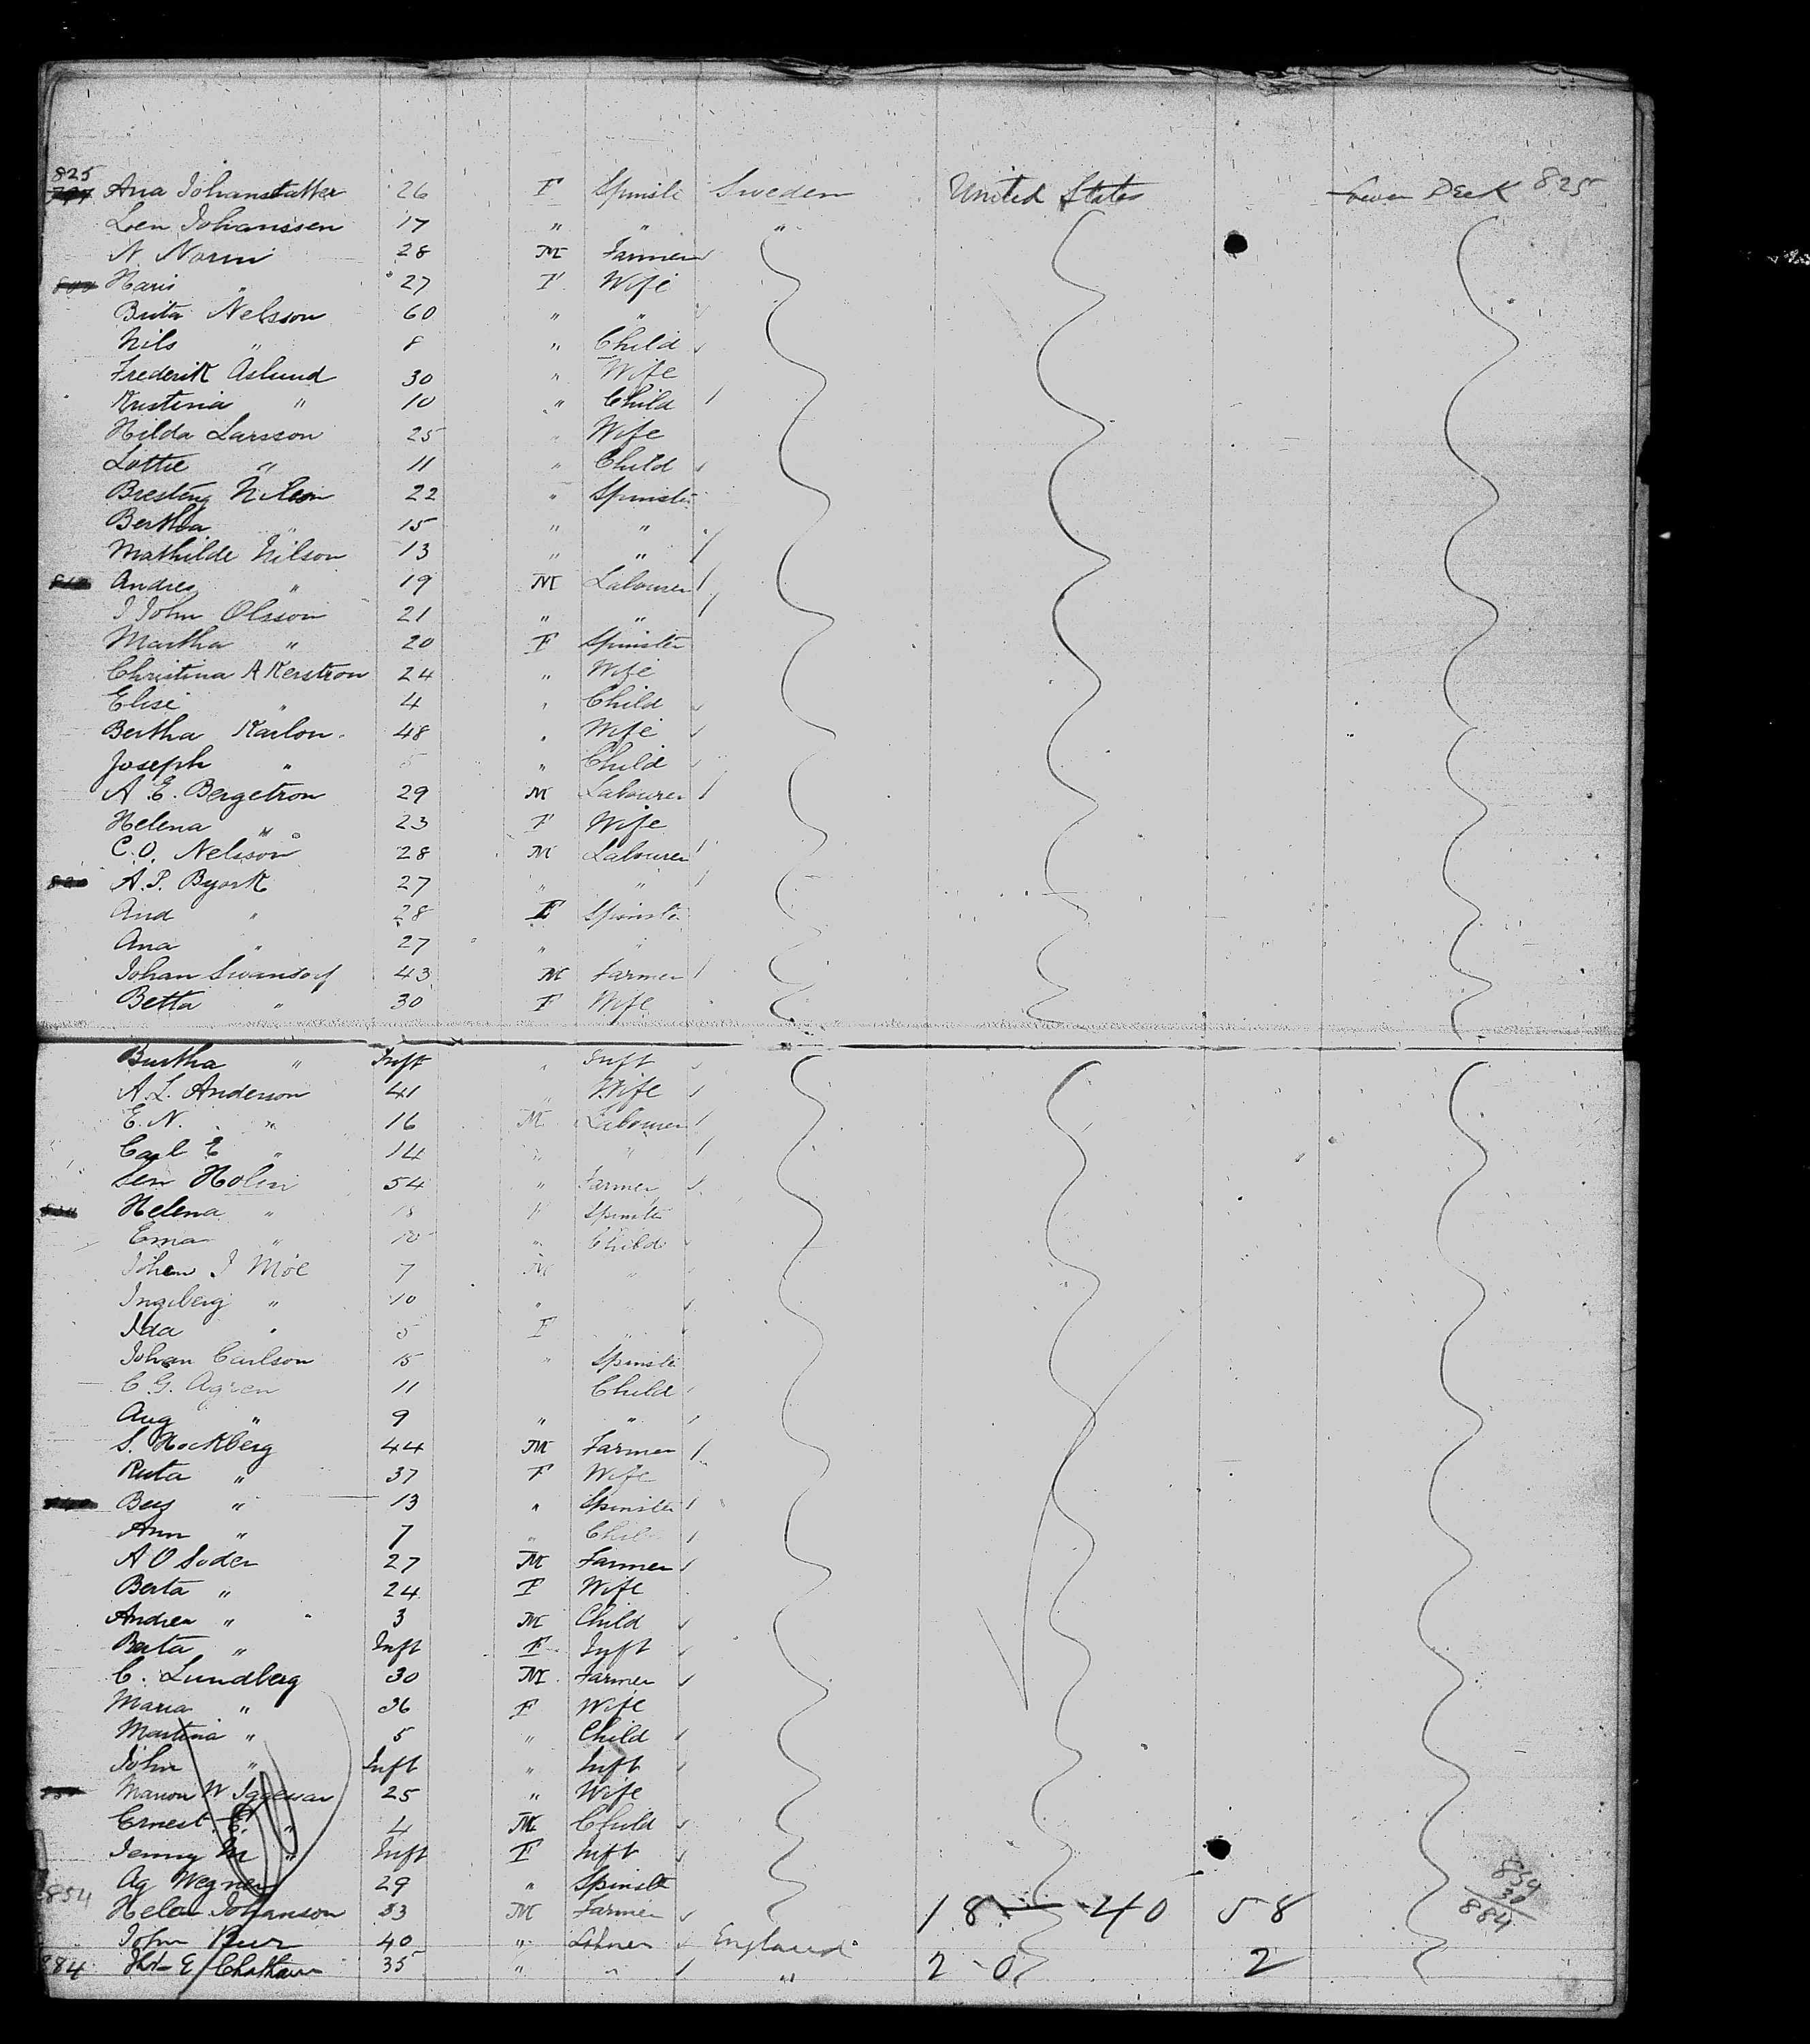 825 Ana Johansdatter 26 F Spinstr Sweden United States Deck 825
Len Johanssen 17 " " "
N. Norin 28 M Farmer
Haris " 27 F Wife
Brita Nelsson 60 " "
Nils " 8 " Child
Frederik Aslund 30 " Wife
Kristina " 10 " Child
Hilda Larsson 25 " Wife
Lottie " 11 " Child
Bresting Nilson 22 " Spinster
Bertha " 15 " "
Mathilde Nilson 13 " "
Andres " 19 M Labourer
J John Olsson 21 " "
Martha " 20 F Spinster
Christina AKerstron 24 " Wife
Elise " 4 " Child
Bertha Karlon 48 " Wife
Joseph " 5 " Child
A. E. Bergetron 29 M Labourer
Helena " 23 F Wife
C. O. Nelsson 28 M Labourer
A. P. Byork 27 " "
And " 28 F Spinstr
Ana " 27 " "
Johan Swanson 43 M Farmer
Betta " 30 F Wife
Bertha " Inft " Inft
A. L. Anderson 41 " Wife
E. N. " 16 M Labourer
Carl E " 14 " "
Sen Holin 54 " Farmer
Helena " 18 F Spinstr
Ema " 10 " Child
Johan J Möe 7 M "
Ingeberg " 10 "
Ida " 5 F "
Johan Carlson 15 " Spinstr
C. G. Agren 11 Child
Aug " 9 " "
S. Hockberg 44 M Farmer
Ruta " 37 F Wife
Berg " 13 " Spinstr
Ann " 7 " Child
A O Soder 27 M Farmer
Berta " 24 F Wife
Andrea " 3 M Child
Berta " Inft F Inft
C. Lundberg 30 M Farmer
Maria " 36 F Wife
Martina " 5 " Child
John " Inft " Inft
Marion W 25 " Wife
Ernest. E. " 4 M Child
Jenny M " Inft F Inft
Ag Wegner 29 " Spinstr 859
30
854 Helen Johanson 33 M Farmer 18 - 40 58 884
John 40 " Labourer England
884 E Chatham 35 " " " 2 - 0 2